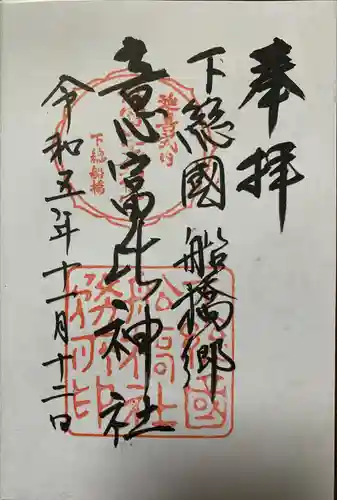 奉拝
下総國 船橋郷
意富比神社
令和五年十一月十二日
延喜式内
下総船橋